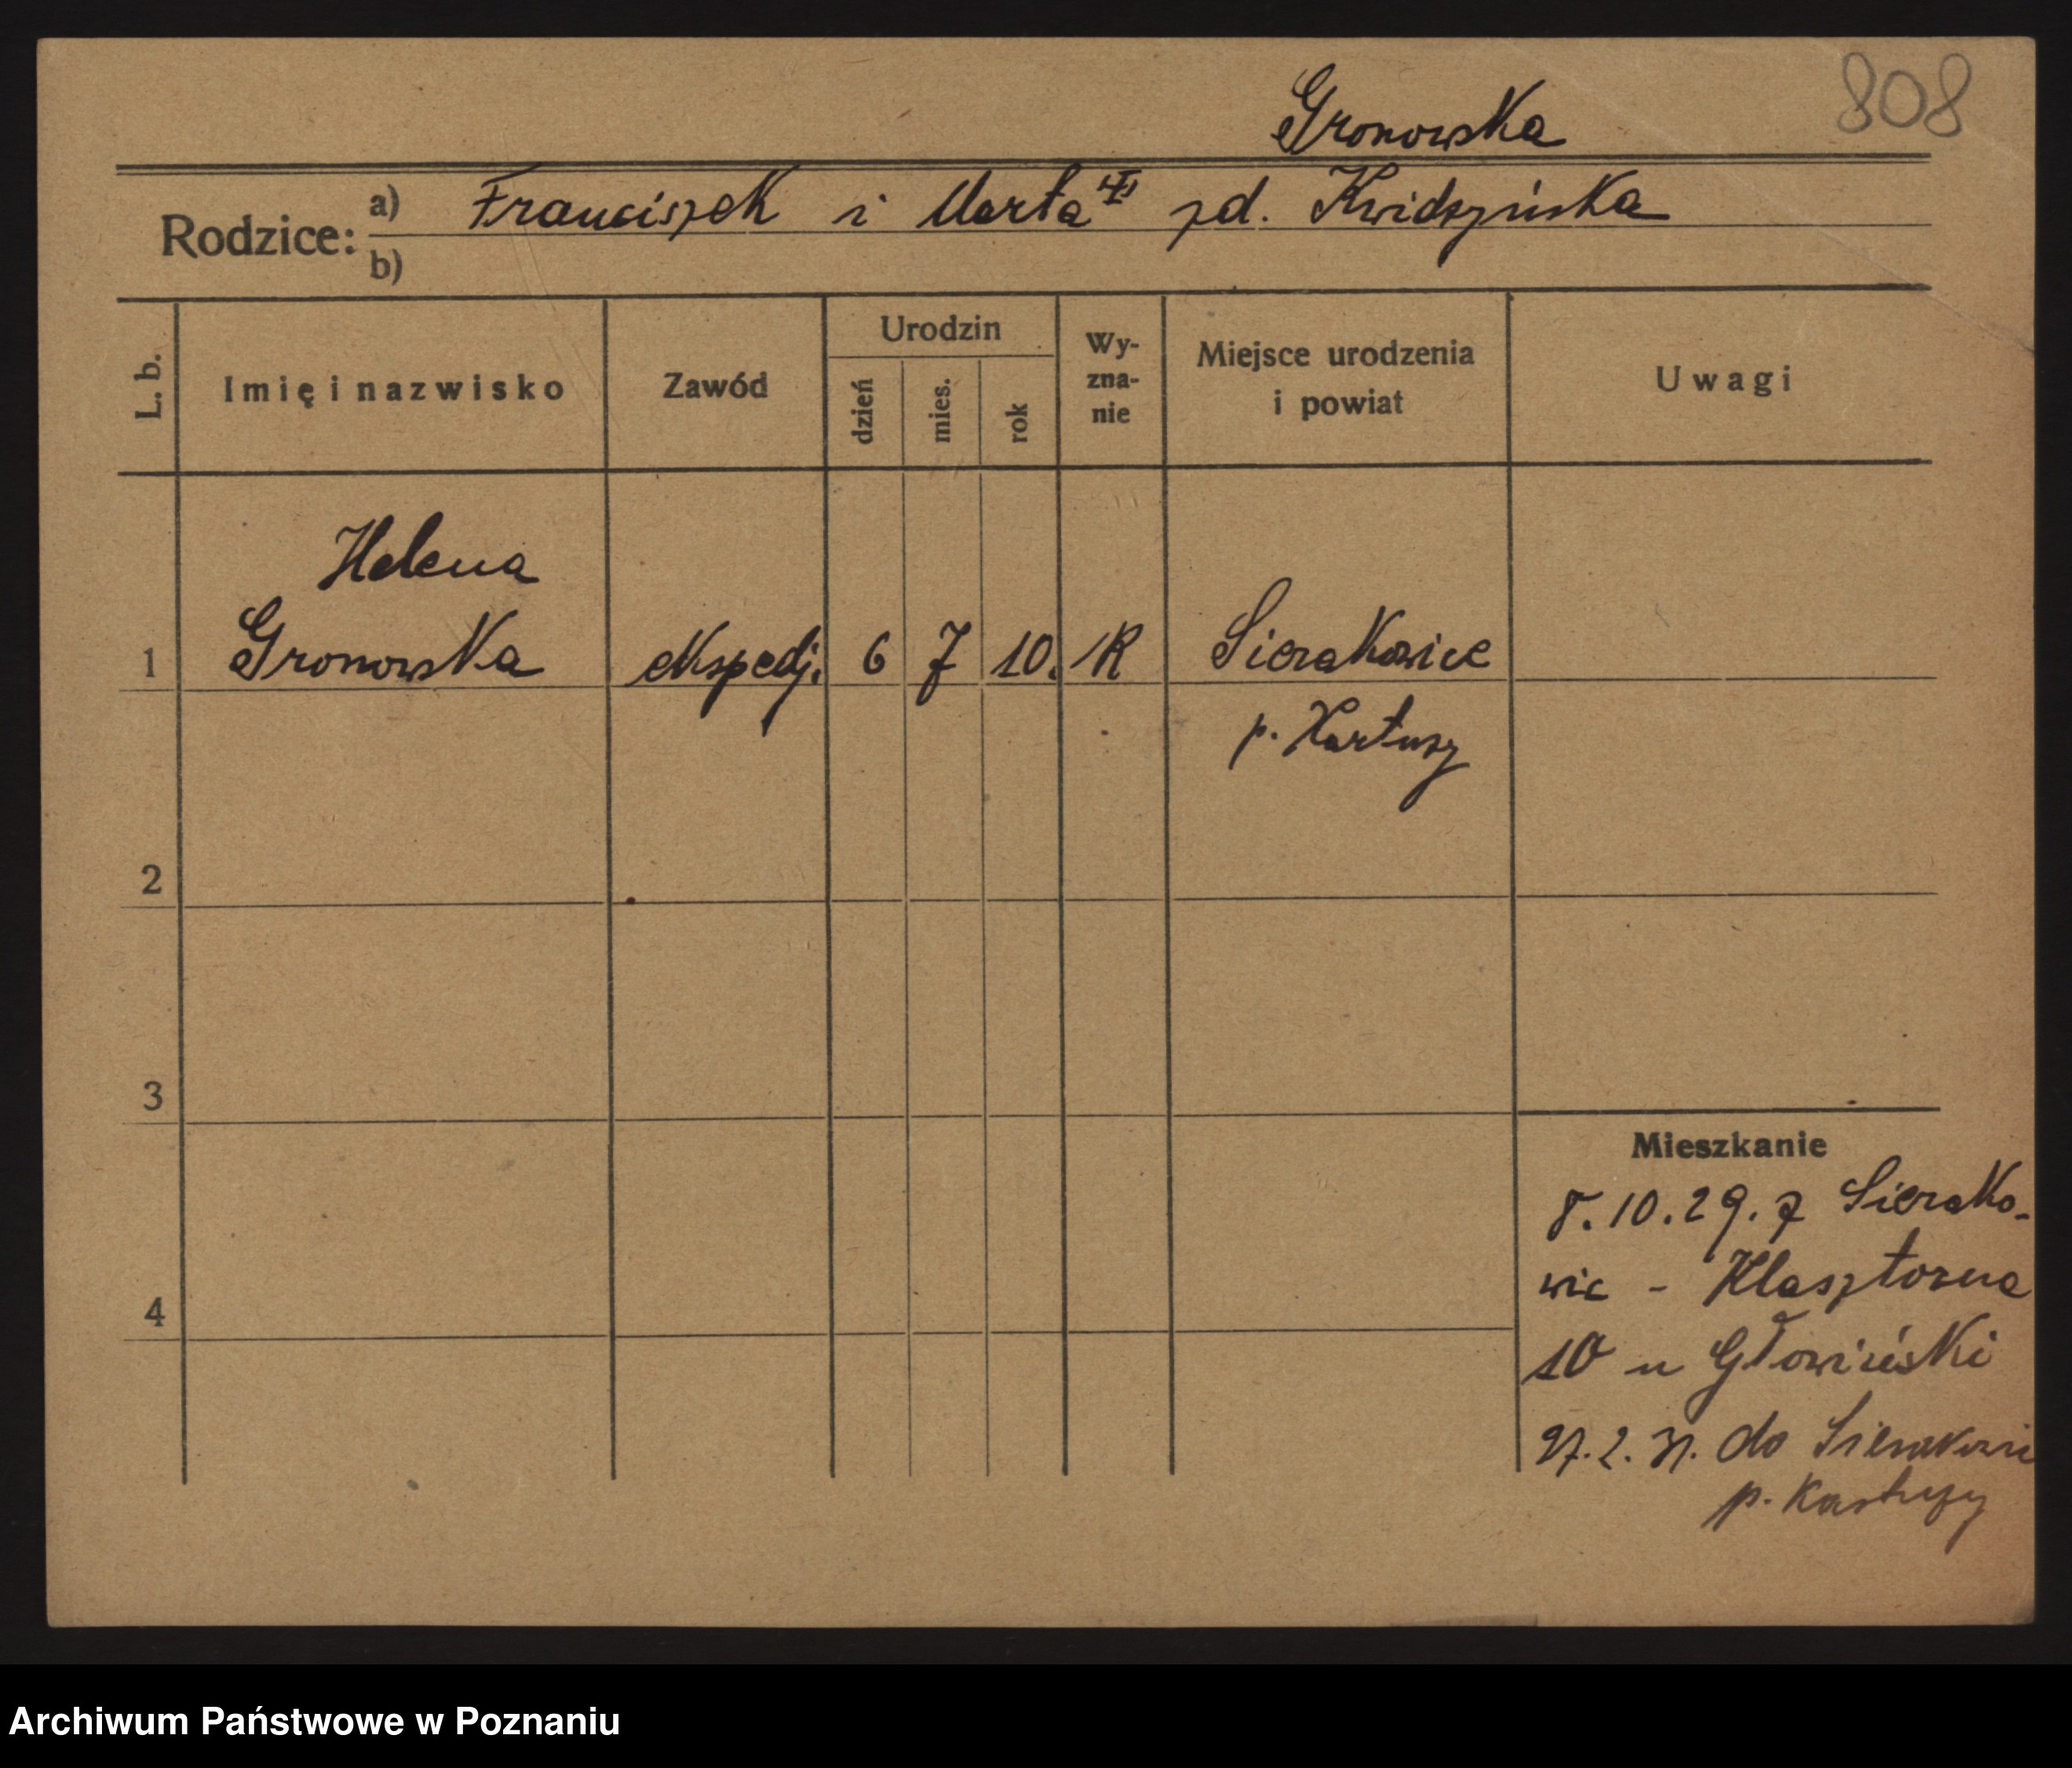 808
Gronowska
Rodzice: a) Franciszek i Marta zd. Kwidzyńska
b)
L. b. Imię i nazwisko Zawód Urodzin dzień mies. rok Wy-zna-nie Miejsce urodzenia i powiat Uwagi
Helena
1 Gronowska ekspedj. 6 7 10. R Sierakowice
p. Kartuzy
2
3
Mieszkanie
8.10.29. z Sierako-
wic - Klasztorna
4
10 u Głowiński
27.2.31. do Sierakowic
p. Kartuzy
Archiwum Państwowe w Poznaniu